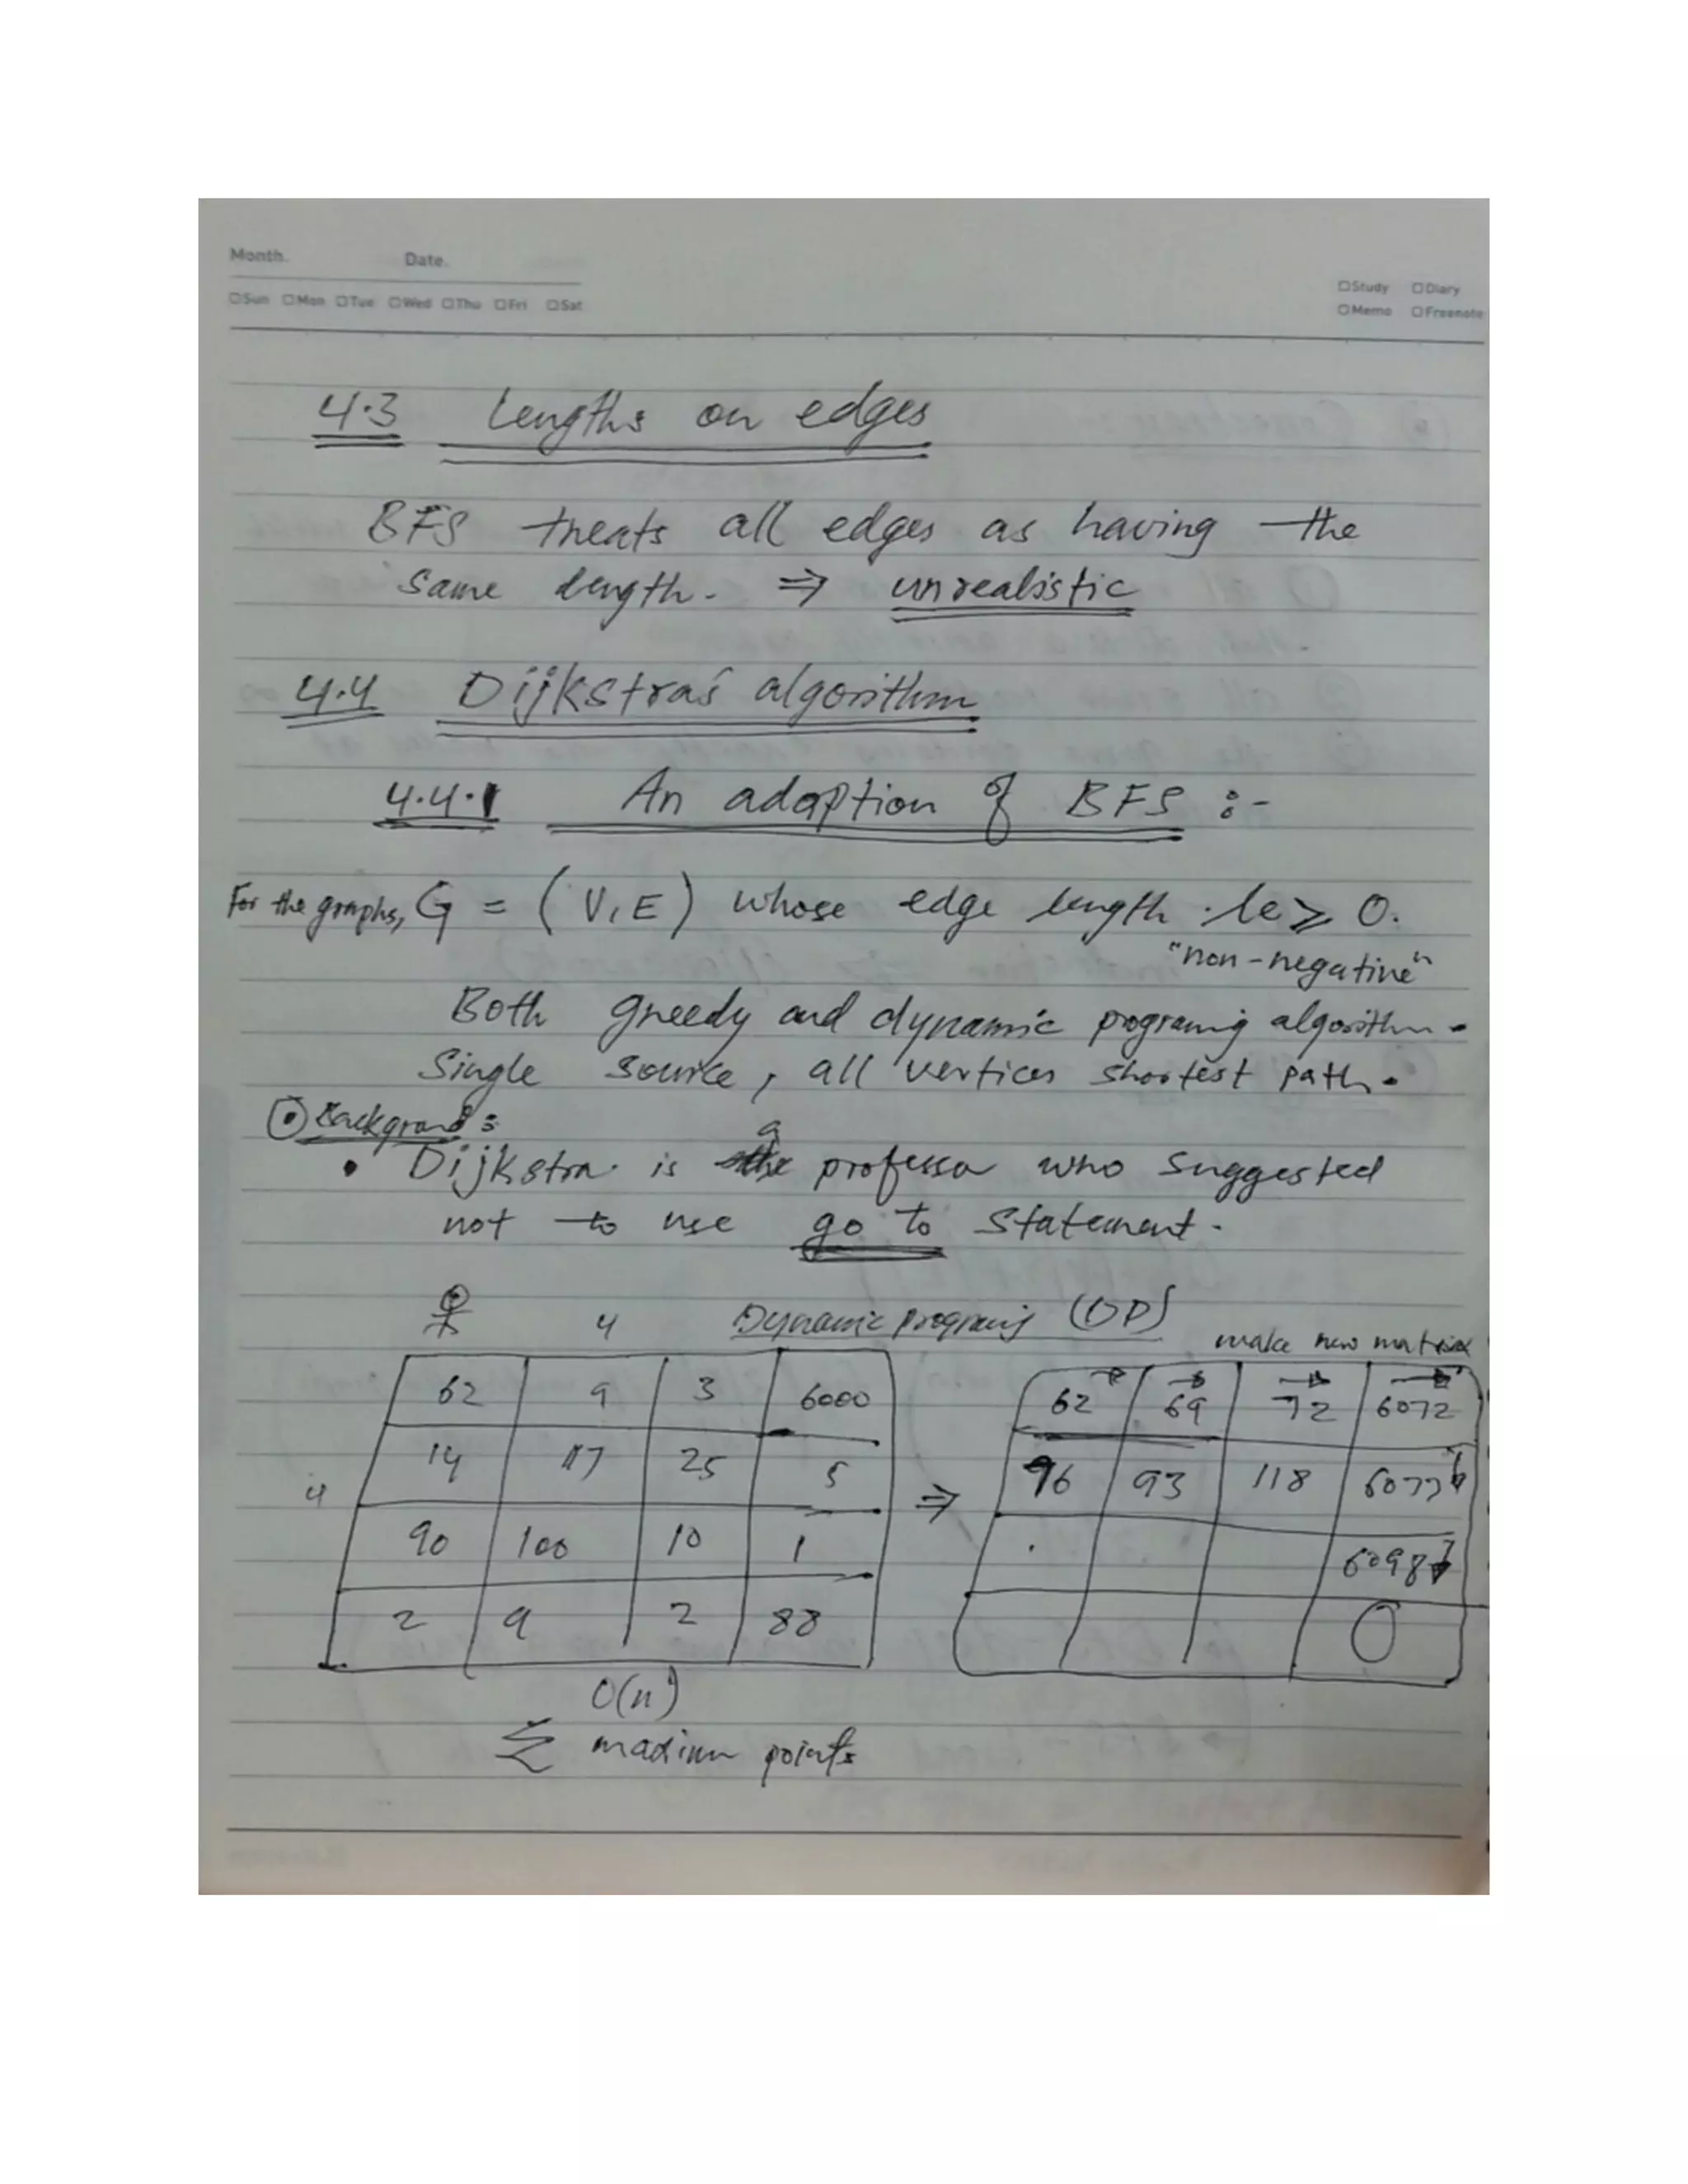 Month. Date.
□Sun □Mon □Tue □Wed □Thu □Fri □Sat
□Study □Diary
□Memo □Freenote
4.3 Lengths on edges
BFS treats all edges as having the
same length. ⇒ unrealistic
4.4 Dijkstra's algorithm
4.4.1 An adaption of BFS :-
For the graphs, G = (V, E) whose edge length le ≥ 0.
"non-negative"
Both greedy and dynamic programing algorithm.
Single source, all vertices shortest path.
Background:
• Dijkstra is a professor who suggested
not to use go to statement.
4 Dynamic programing (DP) make new matrix
62 9 3 6000
14 17 25 5
90 100 10 1
2 9 2 88
4
⇒
62 69 72 6072
96 93 118 6077
6098
O(n)
maximum points